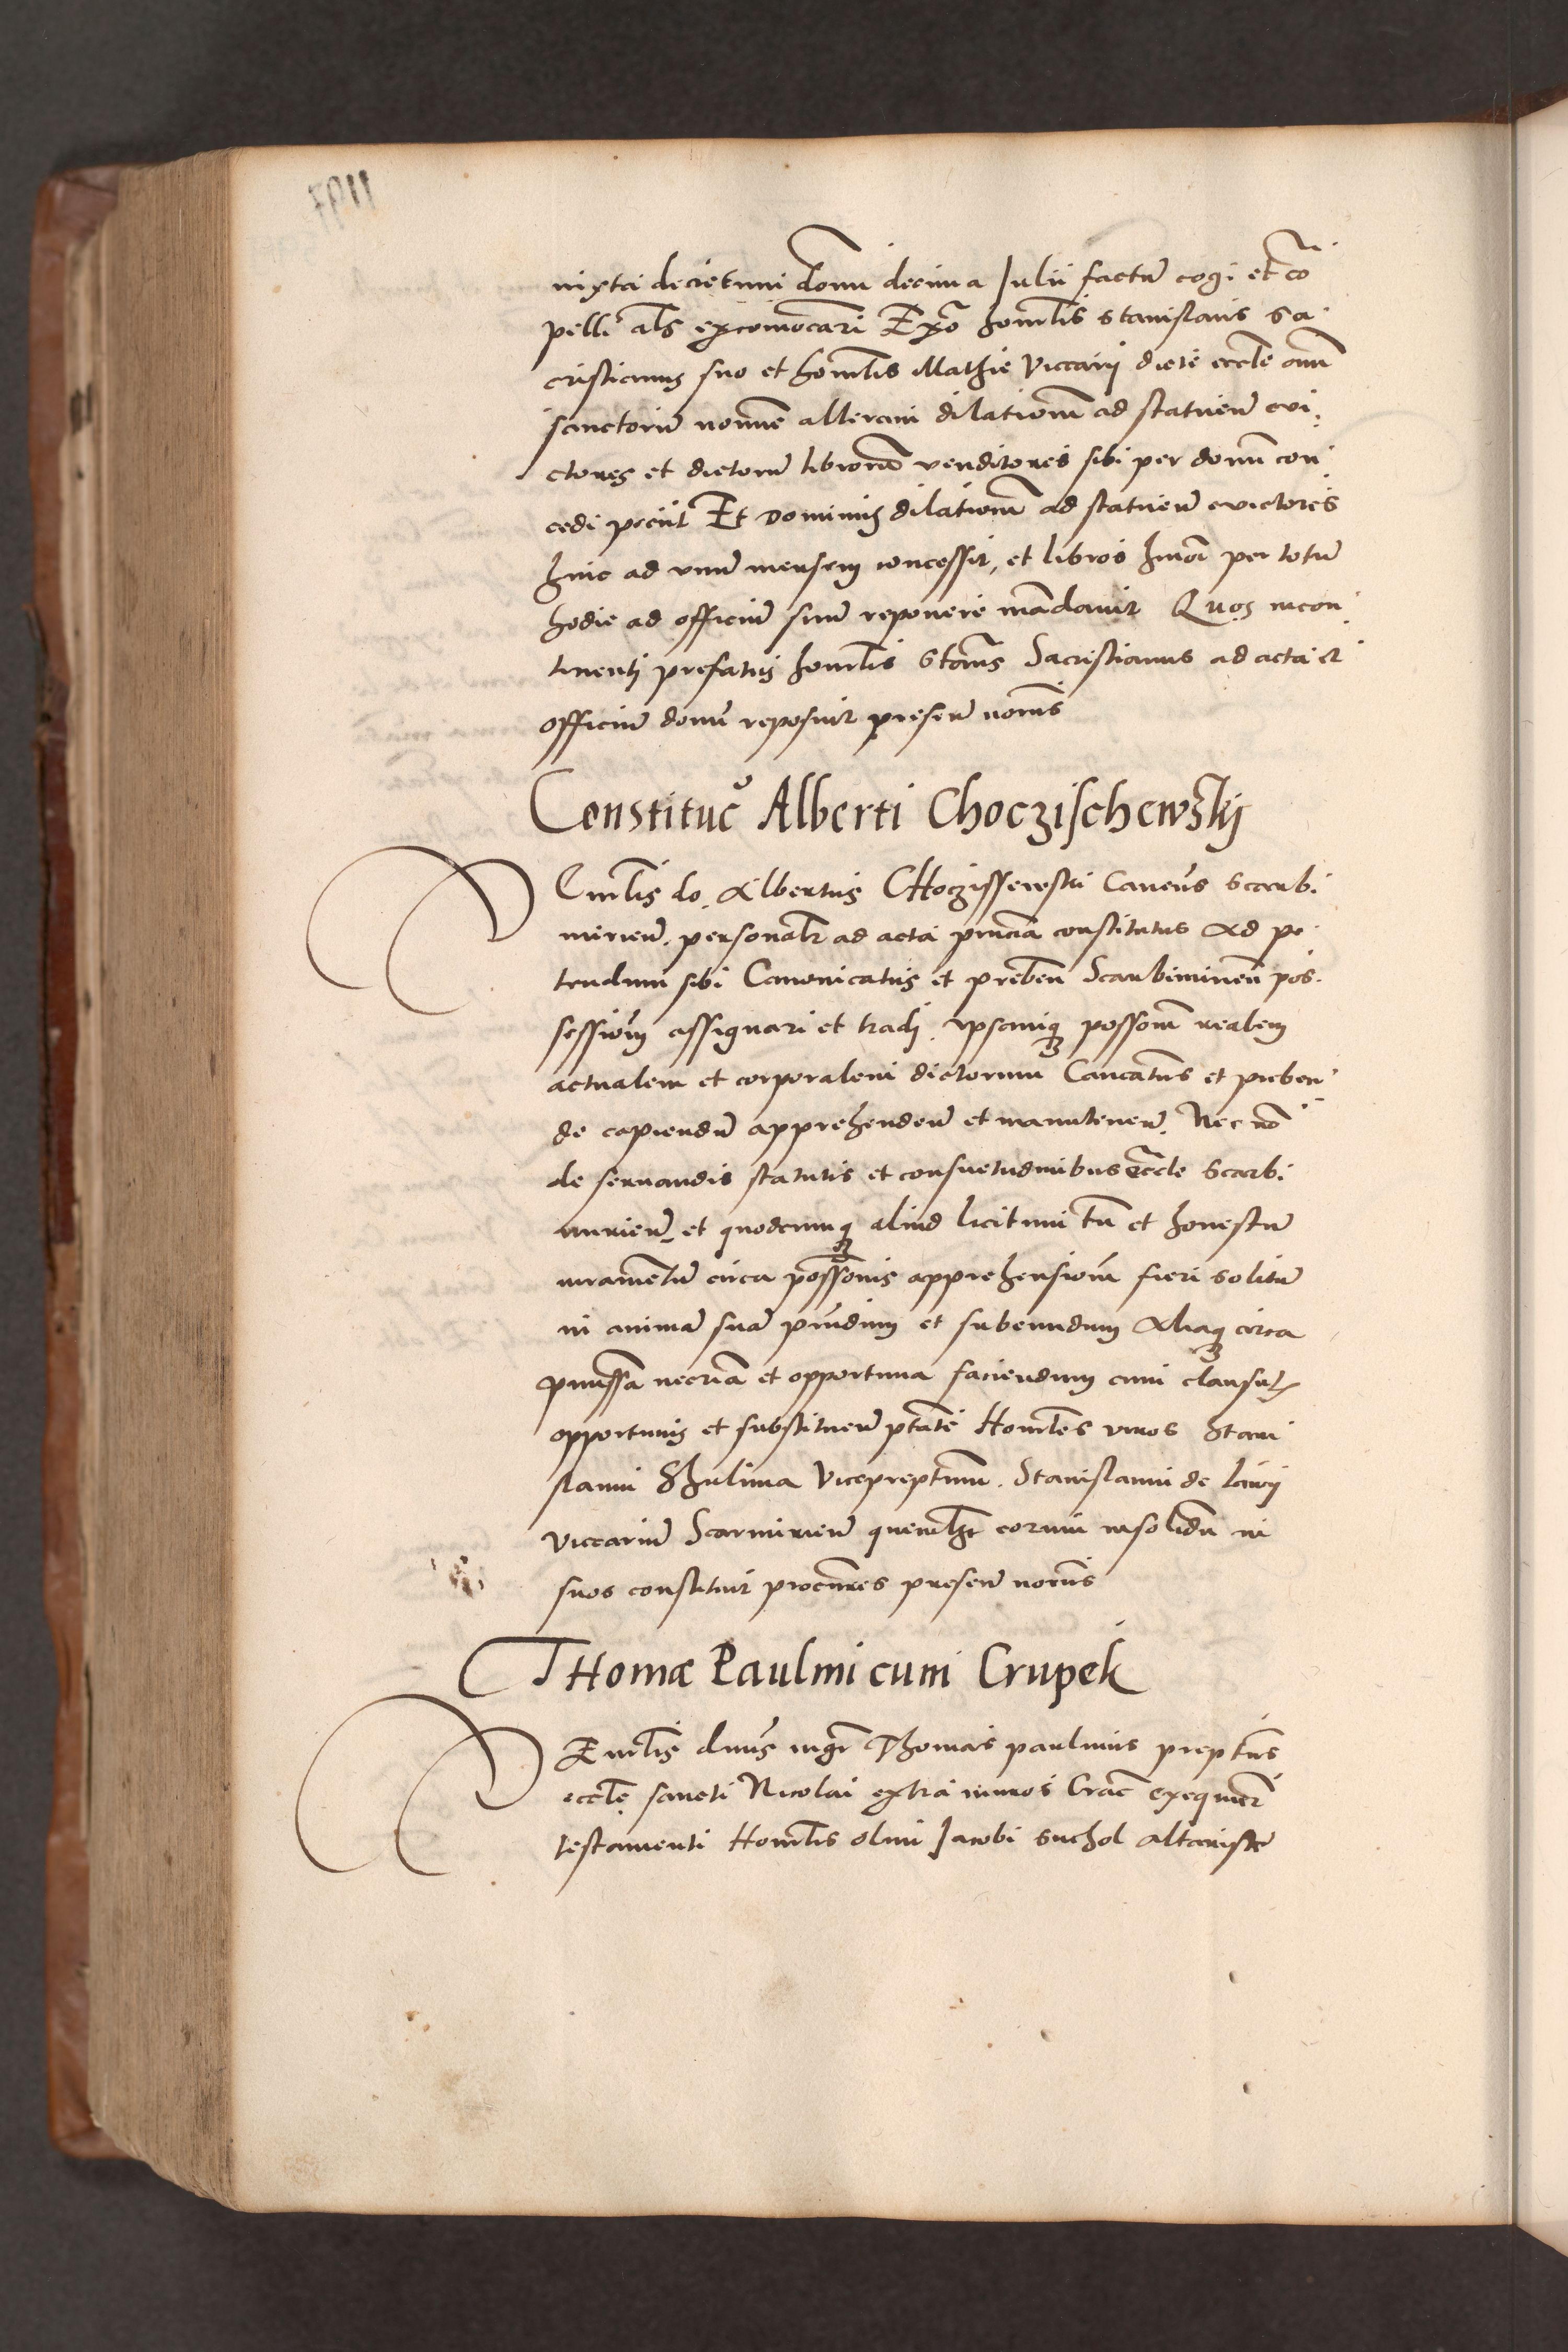 iuxta decretum domi decima Julii factum cogi et com
pelli als excomocari Ex quo honorlis Stanislaus Sa
cristianus suo et honorlis Mathie viccarij dicte eccle omi
sanctorum nomine alteram dilationem ad statuen evi
ctores et dictorum librorum venditores sibi per donum con
cedi peciit Et dominus dilationem ad statuen evictores
hinc ad unum mensem concessit, et libros hmoi per totum
hodie ad officium suum reponere mandavit Quos incon
tinenti prefatus honorlis Stanis Sacristianus ad acta et
officium domi reposuit presen nonis
Constituc Alberti Choczischewskij
Venerlis do. Albertus CHoczissewski Canous Scarbi
mirien. personalr ad acta pnncia constitutus Ad pe
tendum sibi Canonicatus et preben Scarbimirien pos
sessionem assignari et tradi. ipsamque possonem realem
actualem et corporalem dictorum Cancatus et preben
de capiendum apprehenden et manutenen. Nec no
de servandis statutis et consuetudinibus eccle Scarbi
mirien. et quodcunque aliud licitum tn et honestum
iuramentum circa possonis apprehensionem fieri solitum
in animam suam prndum et subeundum Aliaque circa
pmissa necria et opportuna faciendum cum clausulis
opportunis et substituen ptate Honorles viros Stani
slaum Shulima Vicepreptum. Stanislaum de
viccarium Scarmirien quemlibet eorum insolidum in
suos constituit procures presen nonis
THomæ Paulini cum Crupek
Venerlis dnus mgr Thomas paulinus preptus
eccle sancti Nicolai extra muros Crac exequutor
testamenti Honorlis olim Jacobi Suchol altariste